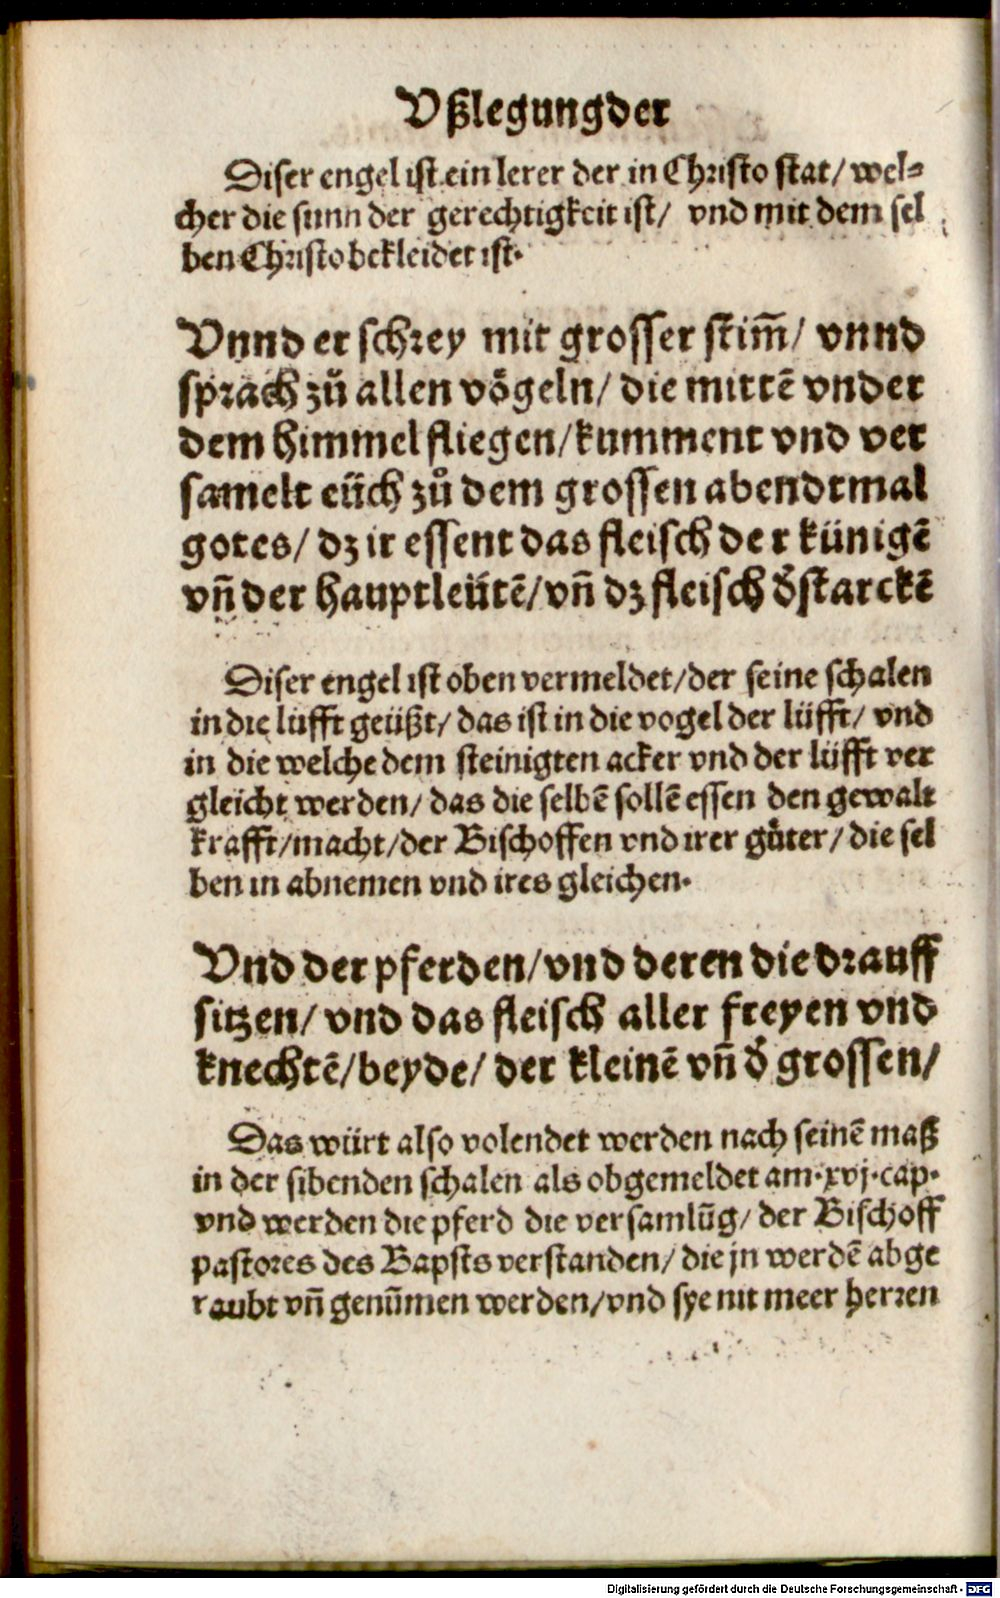 Vßlegung der
Diser engel ist ein lerer der in Christo stat/ wel=
cher die sunn der gerechtigkeit ist/ vnd mit dem sel
ben Christo bekleidet ist.
Vnnd er schrey mit grosser stim̄/ vnnd
sprach zů allen vögeln/ die mittē vnder
dem himmel fliegen/ kumment vnd ver
samelt eüch zů dem grossen abendtmal
gotes/ dz ir essent das fleisch der künigē
vn̄ der hauptleütē/ vn̄ dz fleisch d̓ starckē
Diser engel ist oben vermeldet/ der seine schalen
in die lüfft geüßt/ das ist in die vogel der lüfft/ vnd
in die welche dem steinigten acker vnd der lüfft ver
gleicht werden/ das die selbē sollē essen den gewalt
krafft/ macht/ der Bischoffen vnd irer gůter/ die sel
ben in abnemen vnd ires gleichen.
Vnd der pferden/ vnd deren die drauff
sitzen/ vnd das fleisch aller freyen vnd
knechtē/ beyde/ der kleinē vn̄ d̓ grossen/
Das würt also volendet werden nach seinē maß
in der sibenden schalen als obgemeldet am.xvj.cap.
vnd werden die pferd die versamlūg/ der Bischoff
pastores des Bapsts verstanden/ die jn werdē abge
raubt vn̄ genūmen werden/ vnd sye nit meer herren
Digitalisierung gefördert durch die Deutsche Forschungsgemeinschaft - DFG